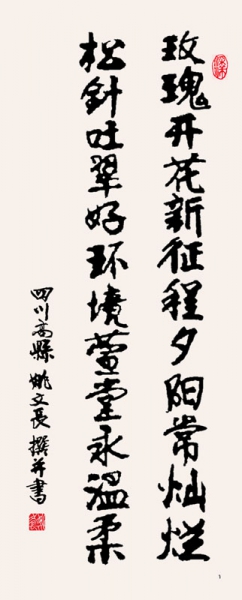 玫瑰开花新征程夕阳常灿烂
松针吐翠好环境萱堂永温柔
四川高县 姚文长 撰并书